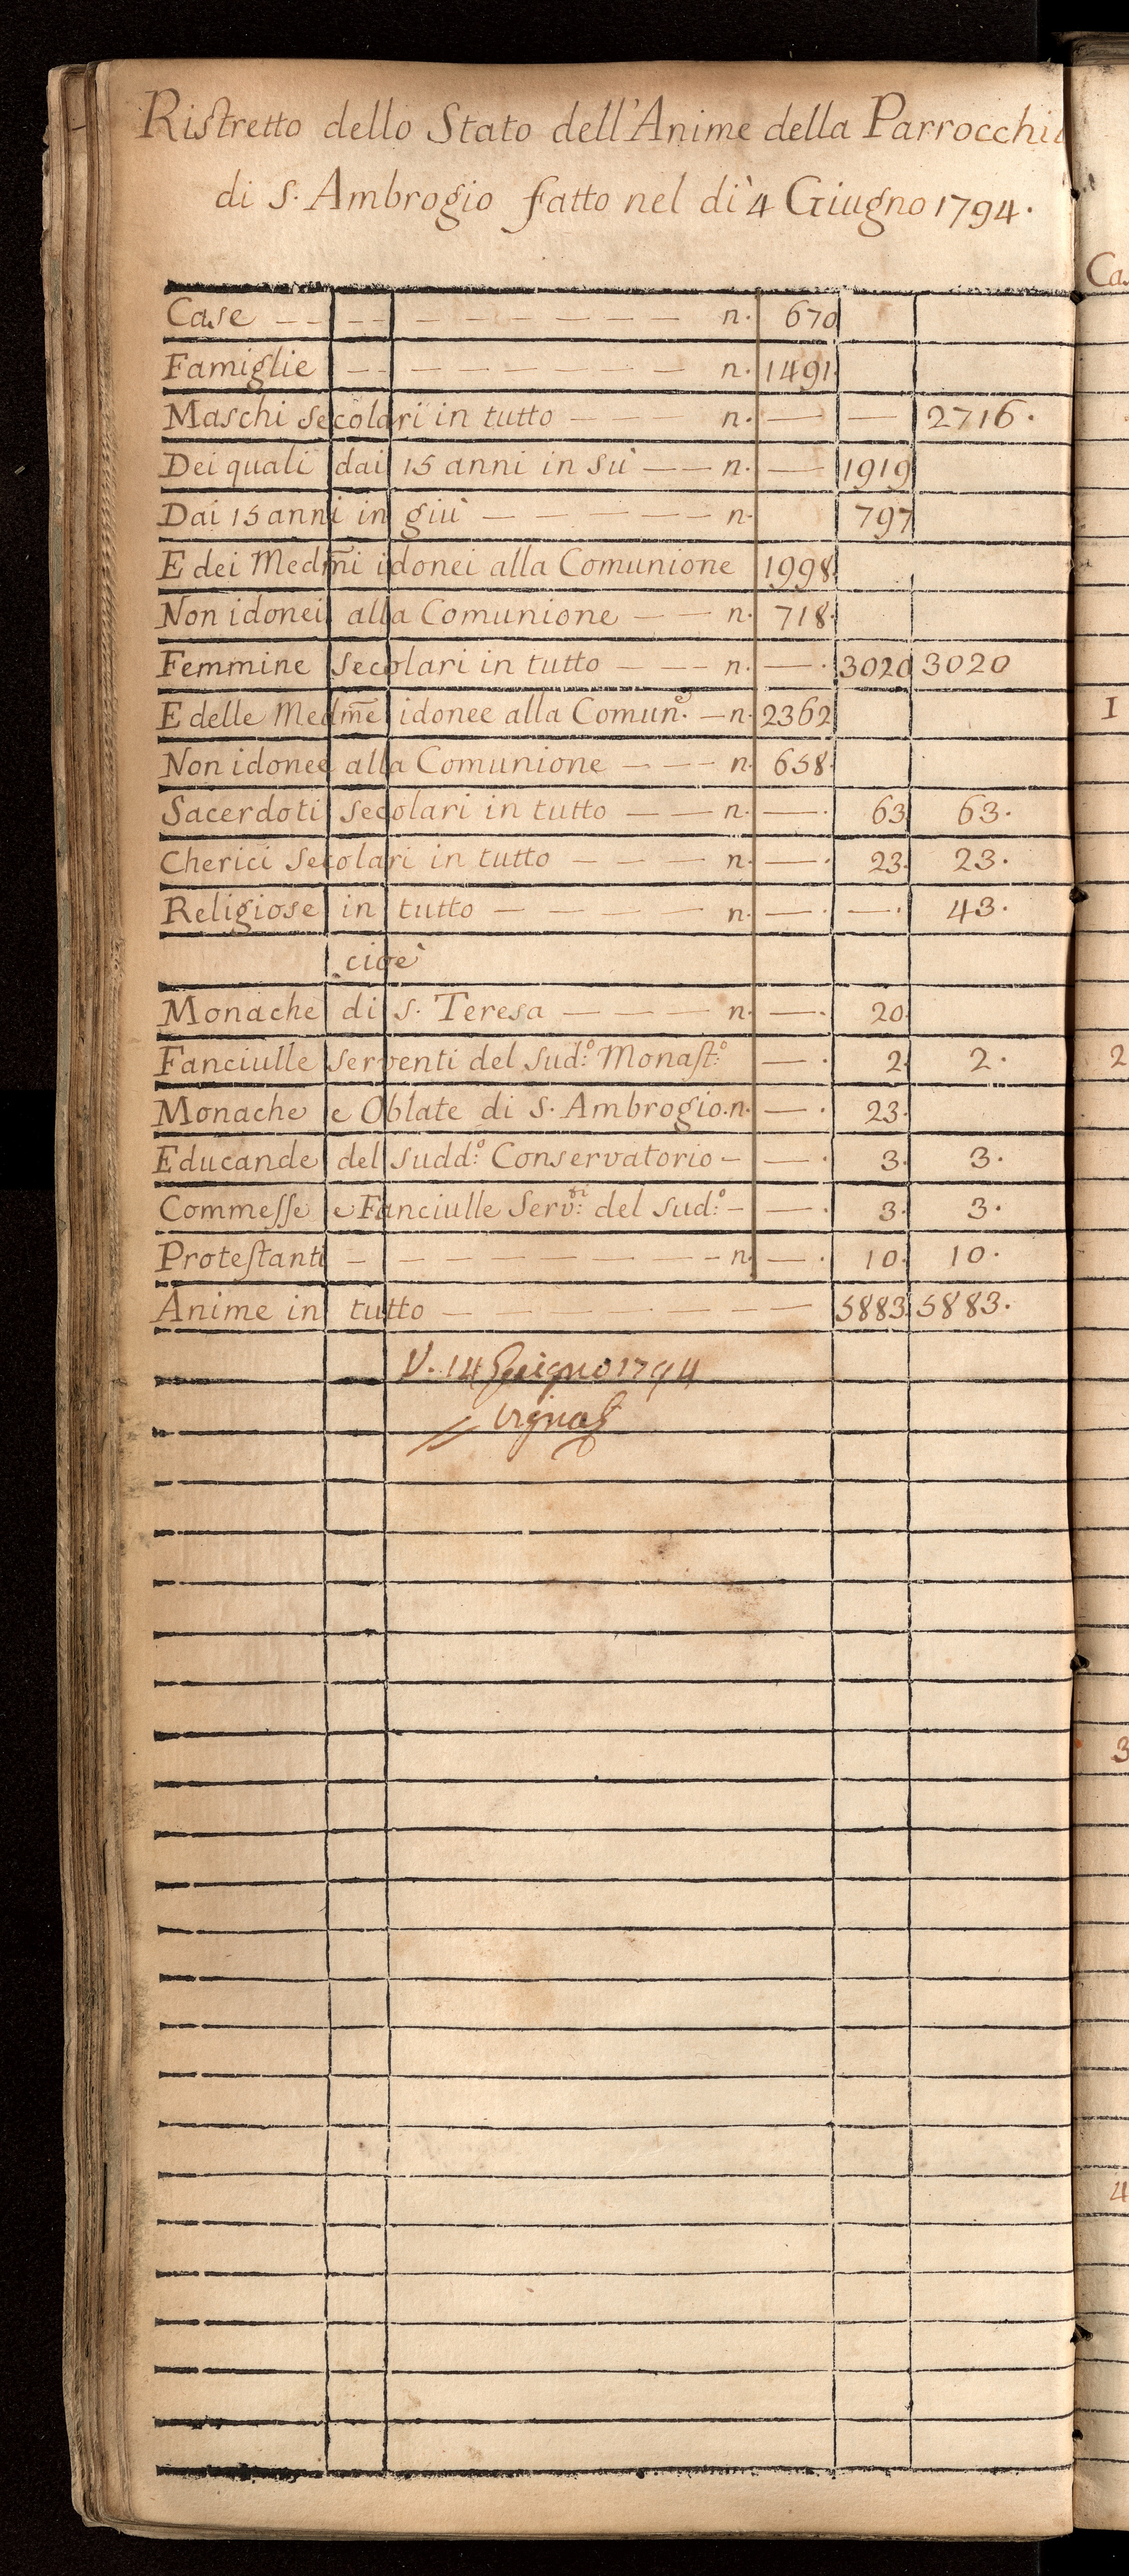 Ristretto dello Stato dell'Anime della Parrocchia
di S. Ambrogio fatto nel dì 4 Giugno 1794.
Case — — — — — — — — n. 670
Famiglie — — — — — — — n. 1491.
Maschi secolari in tutto — — — n. — — 2716.
Dei quali dai 15 anni in sù — — n. — 1919
Dai 15 anni in giù — — — — — n. 797
E dei Medm̃i idonei alla Comunione 1998.
Non idonei alla Comunione — — n. 718.
Femmine secolari in tutto — — — n. — . 3020 3020
E delle Medm̃e idonee alla Comun.e — n. 2362
Non idonee alla Comunione — — — n. 658.
Sacerdoti secolari in tutto — — n. — . 63 63.
Cherici secolari in tutto — — — n. — . 23. 23.
Religiose in tutto — — — — n. — . — . 43.
cioè
Monache di S. Teresa — — — n. — . 20.
Fanciulle serventi del sud:o Monast:o — . 2. 2.
Monache e Oblate di S. Ambrogio. n. — . 23.
Educande del sudd:o Conservatorio — — . 3. 3.
Commesse e Fanciulle Serv:ti del sud:o — — . 3. 3.
Protestanti — — — — — — — n. — . 10. 10.
Anime in tutto — — — — — — — 5883. 5883.
V. 14 Giugno 1794
Ca
1
2
3
4